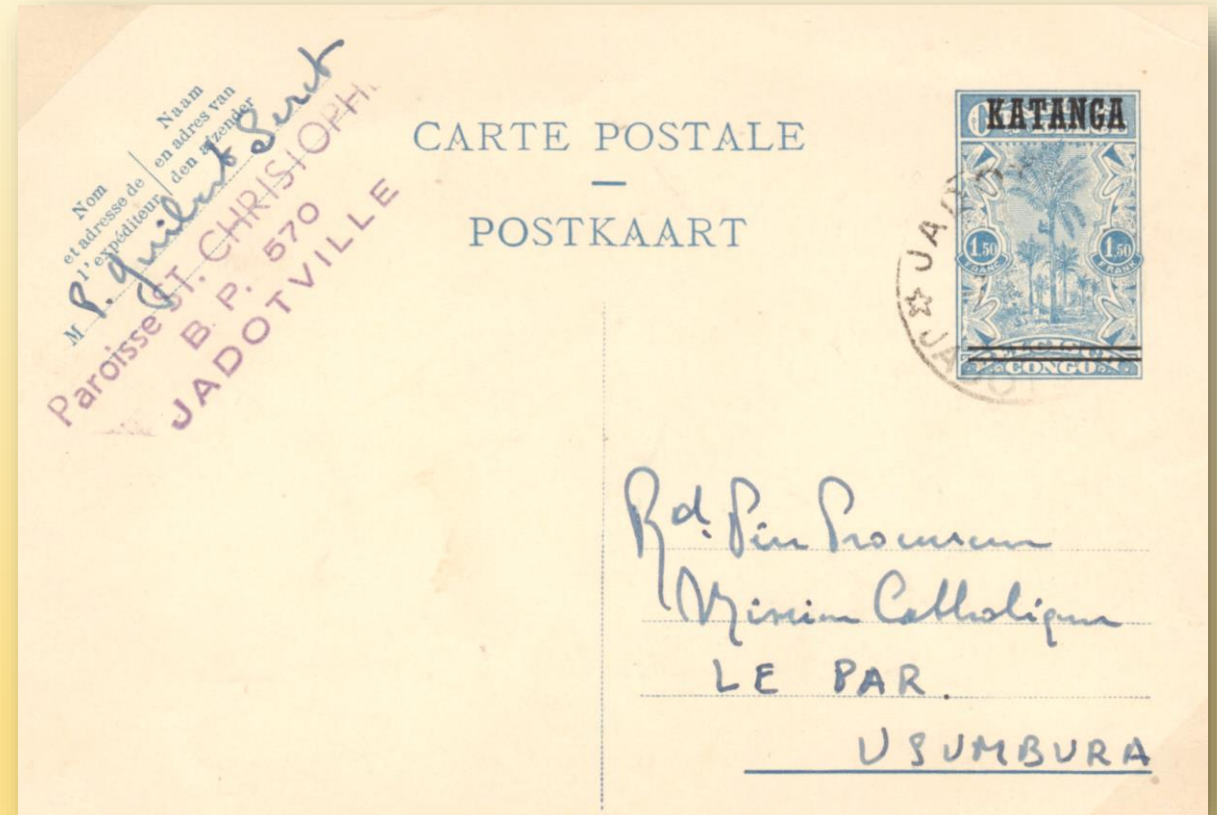 Nom
et adresse de
l'expéditeur
Naam
en adres van
den afzender
M P. Guibert Seret
Paroisse ST. CHRISTOPH
B. P. 570
JADOTVILLE
CARTE POSTALE
POSTKAART
KATANGA
1.50 1.50
FRANC FRANK
CONGO
JADOT
Rd. Père Procureur
Mission Catholique
LE PAR.
USUMBURA